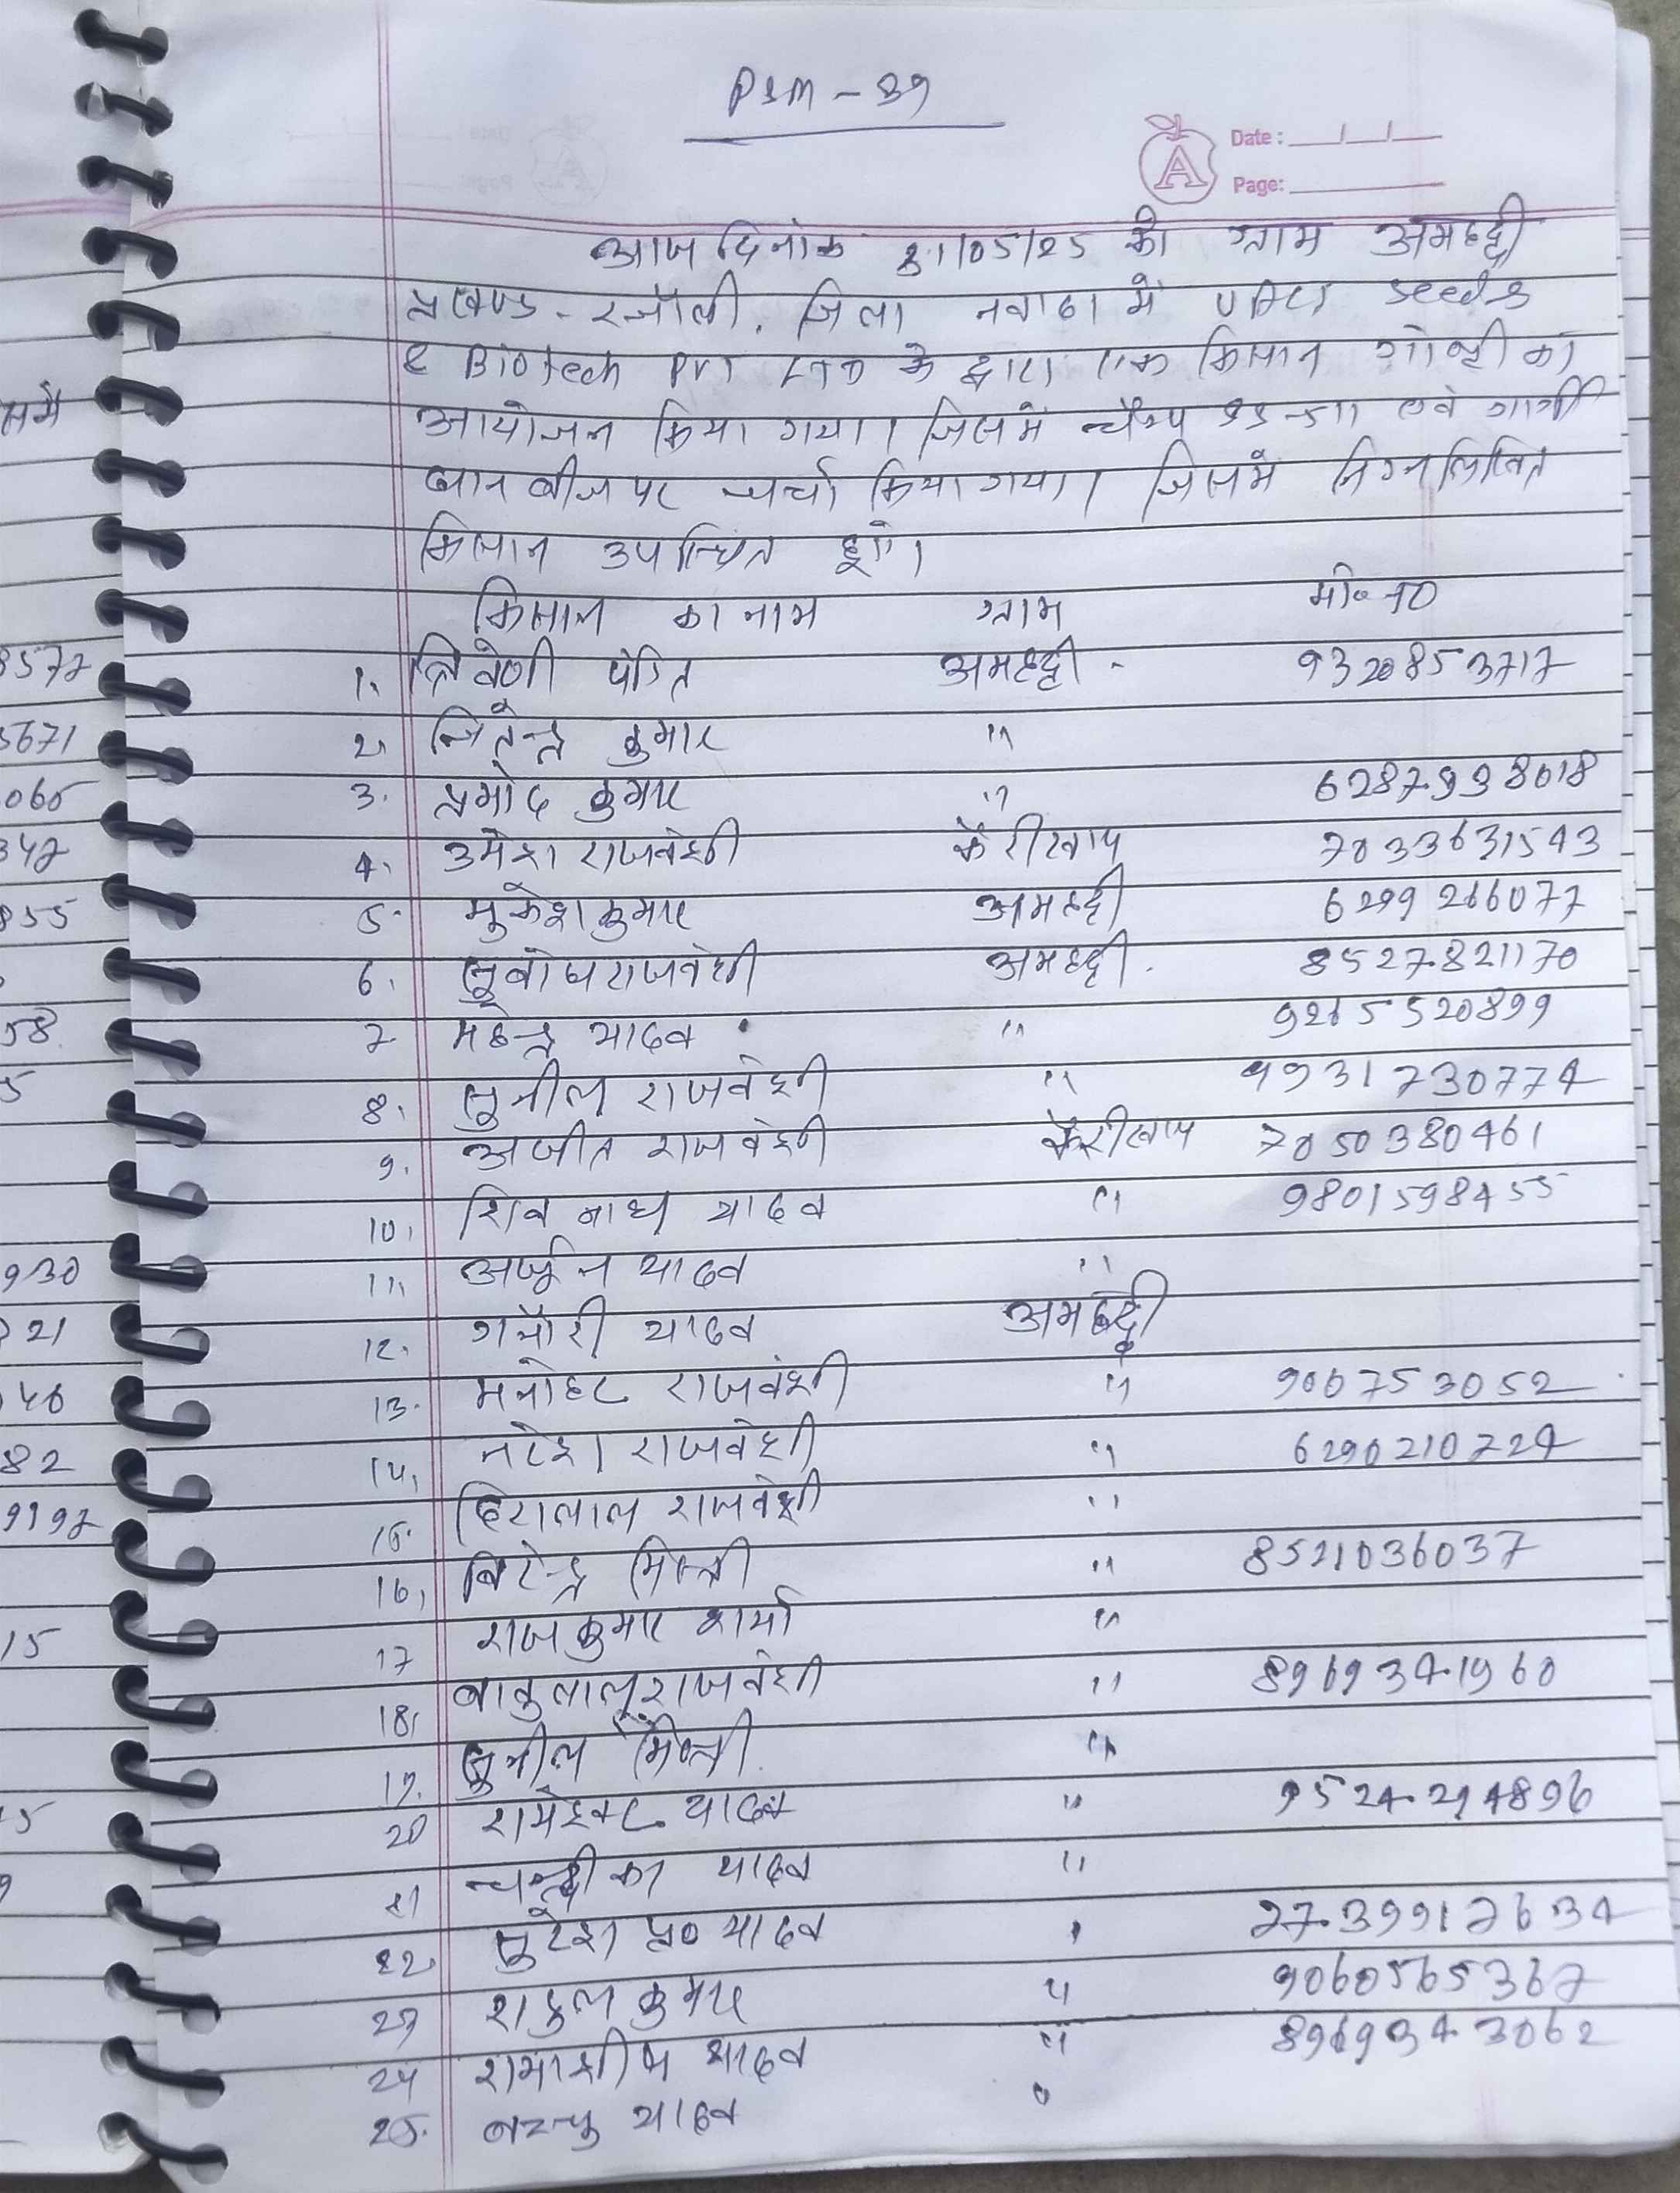 PSM - 39
Date : __/__/__
A
Page:
आज दिनांक 31/05/25 को ग्राम अमहद्दी
प्रखण्ड - रजौली, जिला नवादा में Seeds
& Biotech Pvt LTD के द्वारा एक किसान गोष्ठी का
आयोजन किया गया। जिसमें एवं गार्गी
धान बीज पर चर्चा किया गया। जिसमें निम्नलिखित
किसान उपस्थित हुए।
किसान का नाम ग्राम मो० न०
1. त्रिवेणी पंडित अमहद्दी - 9320853717
2. जितेन्द्र कुमार "
3. प्रमोद कुमार " 6287998018
4. उमेश राजवंशी 7033631543
5. मुकेश कुमार अमहद्दी 6299266077
6. सुबोध राजवंशी अमहद्दी. 8527821170
7 महेन्द्र यादव " 9265520899
8. सुनील राजवंशी " 9931730774
9. अजीत राजवंशी 7050380461
10. शिव नाथ यादव " 9801598455
11. अर्जुन यादव "
12. गनौरी यादव अमहद्दी
13. मनोहर राजवंशी " 9006753052
14. नरेश राजवंशी " 6290210724
15. हिरालाल राजवंशी "
16. बिरेन्द्र मिस्त्री " 8521036037
17 राजकुमार शर्मा "
18. बाबुलाल राजवंशी " 8969341960
19. सुनील मिस्त्री "
20 रामेश्वर यादव " 9524294896
21 चन्द्रीका यादव "
22. सुरेश प्र० यादव " 2739912634
23 राहुल कुमार " 9060565367
24 रामाशीष यादव " 8969343062
25. यादव "
8577
5671
065
347
855
58
5
930
21
46
82
9197
15